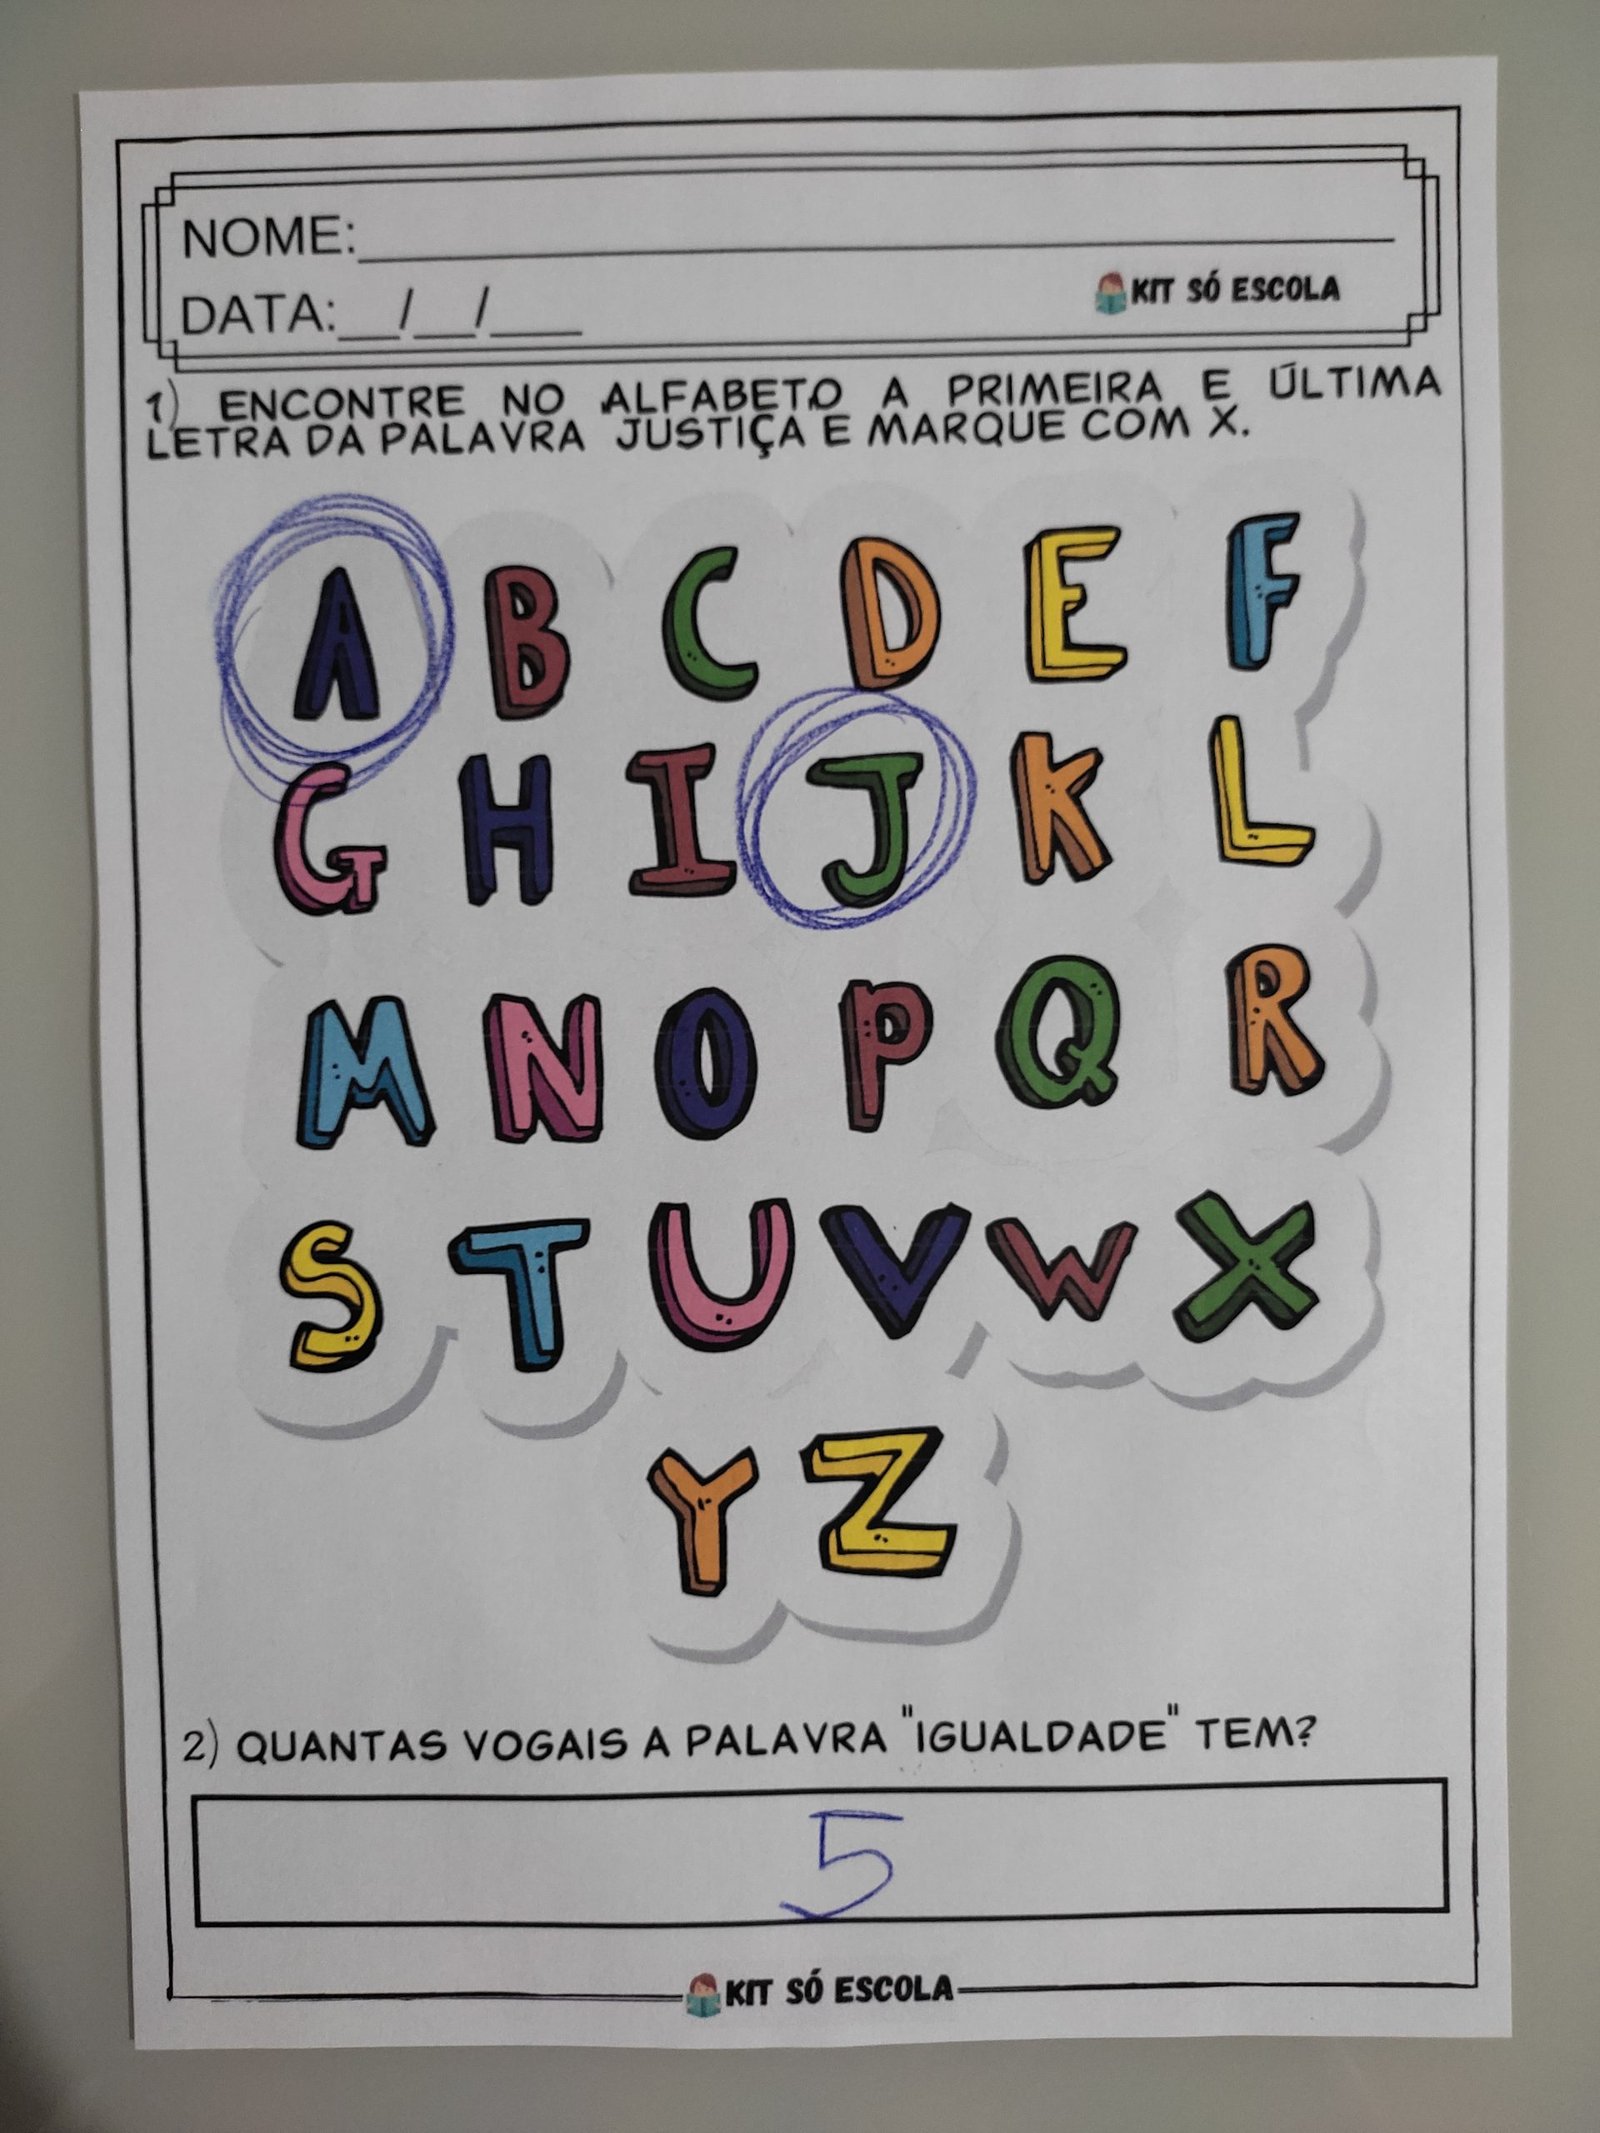 NOME:
DATA:__/__/___
KIT SÓ ESCOLA
1) ENCONTRE NO ALFABETO A PRIMEIRA E ÚLTIMA
LETRA DA PALAVRA JUSTIÇA E MARQUE COM X.
A B C D E F
G H I J K L
M N O P Q R
S T U V W X
Y Z
2) QUANTAS VOGAIS A PALAVRA "IGUALDADE" TEM?
5
KIT SÓ ESCOLA